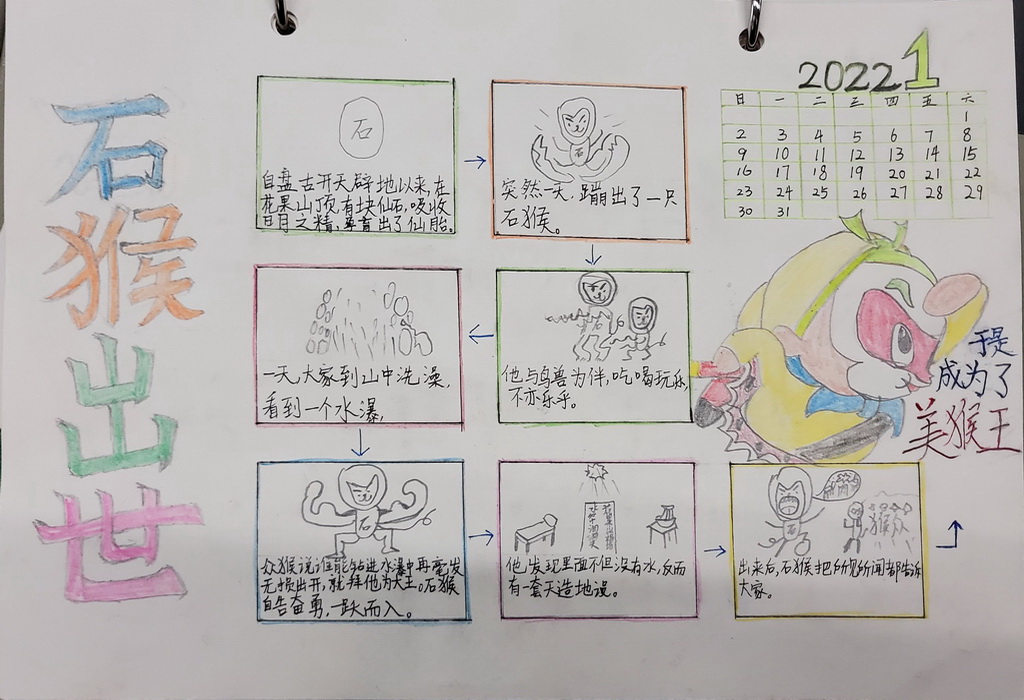 石猴出世
石
自盘古开天辟地以来,在
花果山顶,有块仙石,吸收
日月之精,孕育出了仙胎。
石
突然一天,蹦出了一只
石猴。
石
他与鸟兽为伴,吃喝玩乐,
不亦乐乎。
一天,大家到山中洗澡,
看到一个水瀑,
石
众猴说谁能钻进水瀑中再毫发
无损出开,就拜他为大王。石猴
自告奋勇,一跃而入。
他发现里面不但没有水,反而
有一套天造地设。
石
猴众
出来后,石猴把所见所闻都告诉
大家。
于是
成为了
美猴王
2022 1
日 一 二 三 四 五 六
1
2 3 4 5 6 7 8
9 10 11 12 13 14 15
16 17 18 19 20 21 22
23 24 25 26 27 28 29
30 31